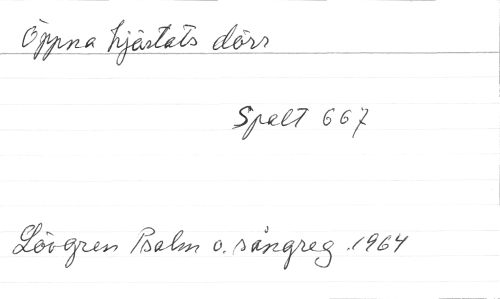 Öppna hjärtats dörr
Spalt 667
Lövgren Psalm o. sångreg. 1964